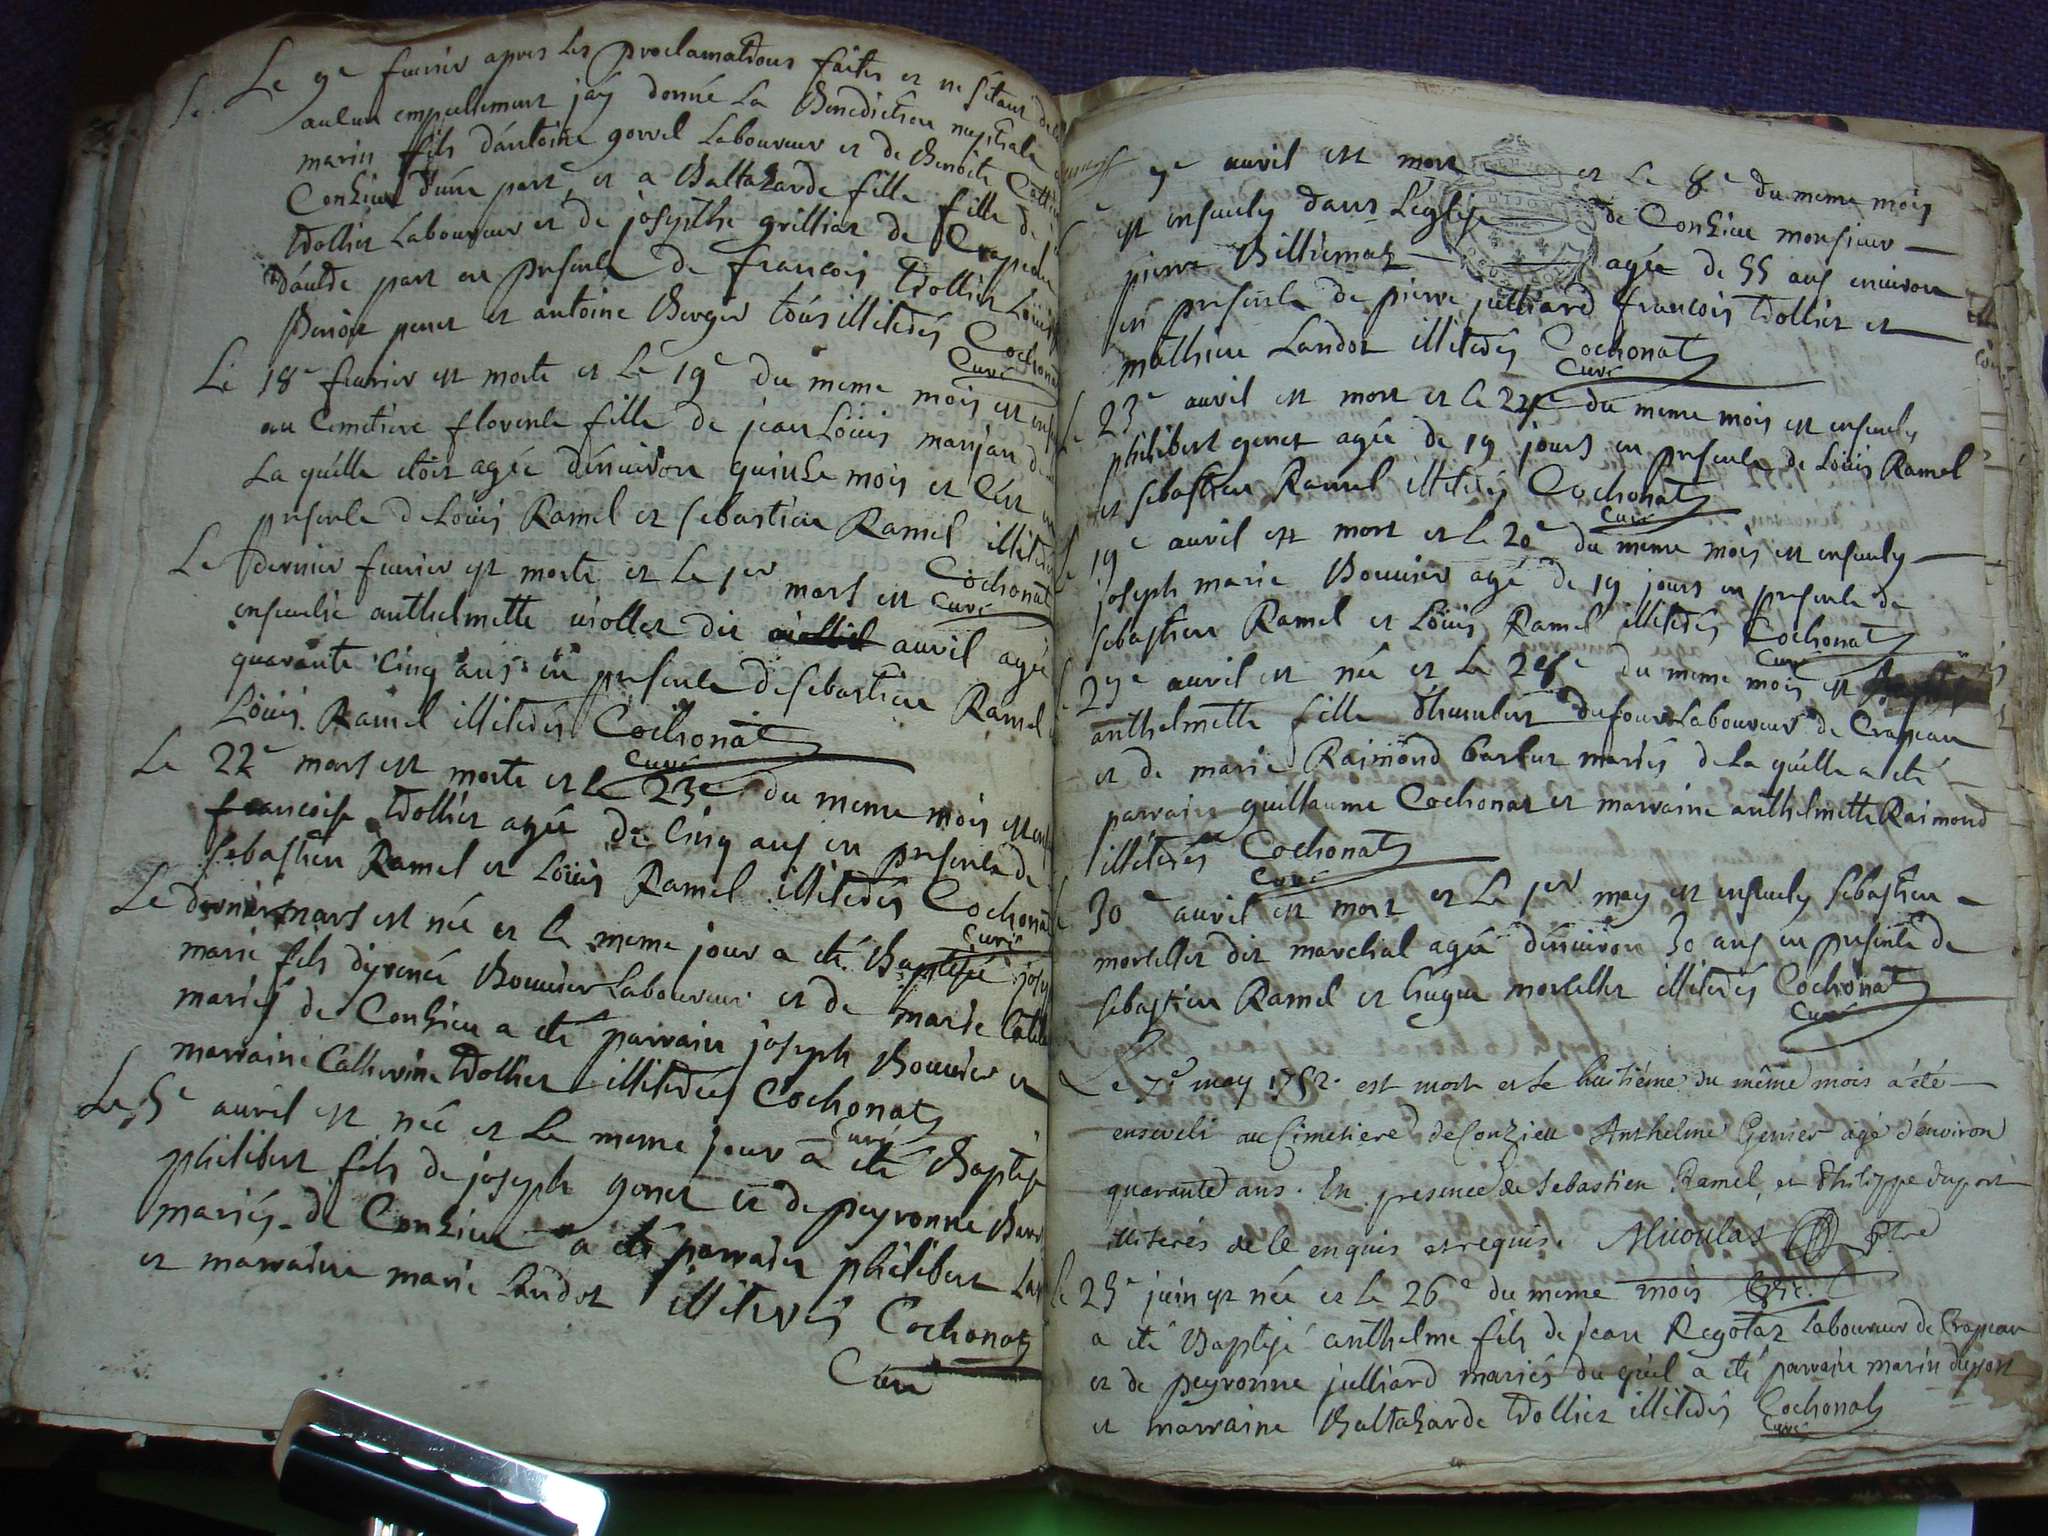 Le 9e fevrier apres les proclamations faites et ne sétant
aucun empechement jay donné La Benediction nuptiale
marin fils dantoine gorrel Laboureur et de Benoite
Conzieu dune part, et a Baltazarde fille fille de
Wollier Laboureur et de josephe grilliat de Crapeau
dautre part en presence de francois Wollier Loüis
Benoit penet et antoine Berger tous illiterés Cochonat
Curé
Le 18e fevrier est morte et Le 19e du meme mois est
au Cemetiere florence fille de jean Loüis marjan
La quelle etoit agée d'environ quinze mois et Cest
presence de Loüis Ramel et sebastien Ramel illiterés
Cochonat
Le dernier fevrier est morte et Le 1er mars est Curé
ensevelie anthelmette violet dit avril agée
quarante Cinq ans en presence de sebastien Ramel
Loüis Ramel illiterés Cochonat
Curé
Le 22e mars est morte et le 23e du meme mois est
francoise Wollier agée de Cinq ans en presence de
sebastien Ramel et Loüis Ramel illiterés Cochonat
Curé
Le dernier mars est née et le meme jour a eté Baptisé
marie fils dyrenée Bouvier Laboureur et de marie
mariés de Conzieu a eté parrain joseph Bouvier et
marraine Catherine Wollier illiterés Cochonat
Curé
Le 5e avril est né et Le meme jour a eté Baptisé
philibert fils de joseph genet et de peyronne
mariés de Conzieu a eté parrain philibert
et marraine marie Landot illiterés Cochonat
Curé
7e avril est mort et Le 8e du meme mois
est ensevely dans Léglise de Conzieu monsieur
pierre Billiemaz agée de 55 ans environ
en presence de pierre julliard francois Wollier et
mathieu Landot illiterés Cochonat
Curé
Le 23e avril est mort et le 24e du meme mois est ensevely
philibert genet agée de 19 jours en presence de Loüis Ramel
et sebastien Ramel illiterés Cochonat
Curé
Le 19e avril est mort et le 20e du meme mois est ensevely
joseph marie Bouvier agé de 19 jours en presence de
sebastien Ramel et Loüis Ramel illiterés Cochonat
Curé
Le 27e avril est née et Le 28e du meme mois est
anthelmette fille dhumbert dufour Laboureur de Crapeau
et de marie Raimond barbut mariés de La quelle a eté
parrain guillaume Cochonat et marraine anthelmette Raimond
illiterés Cochonat
Curé
Le 30e avril est mort et Le 1er may est ensevely sebastien
morcellet dit marechal agée denviron 30 ans en presence de
sebastien Ramel et hugue morcellet illiterés Cochonat
Curé
Le 7e may 1752. est mort et le huitiéme du même mois a été
enseveli au Cimetiere de Conzieu Anthelme Genier agé d'environ
quarante ans. En presence de Sebastien Ramel, et Philippe duport
illiterés de ce enquis et requis. Micoulas Ptre
Le 25e juin est née et le 26e du meme mois
a eté Baptisé anthelme fils de jean Regotaz Laboureur de Crapeau
et de peyronne julliard mariés du quel a eté parrain marin duport
et marraine Baltazarde Wollier illiterés Cochonat
Curé